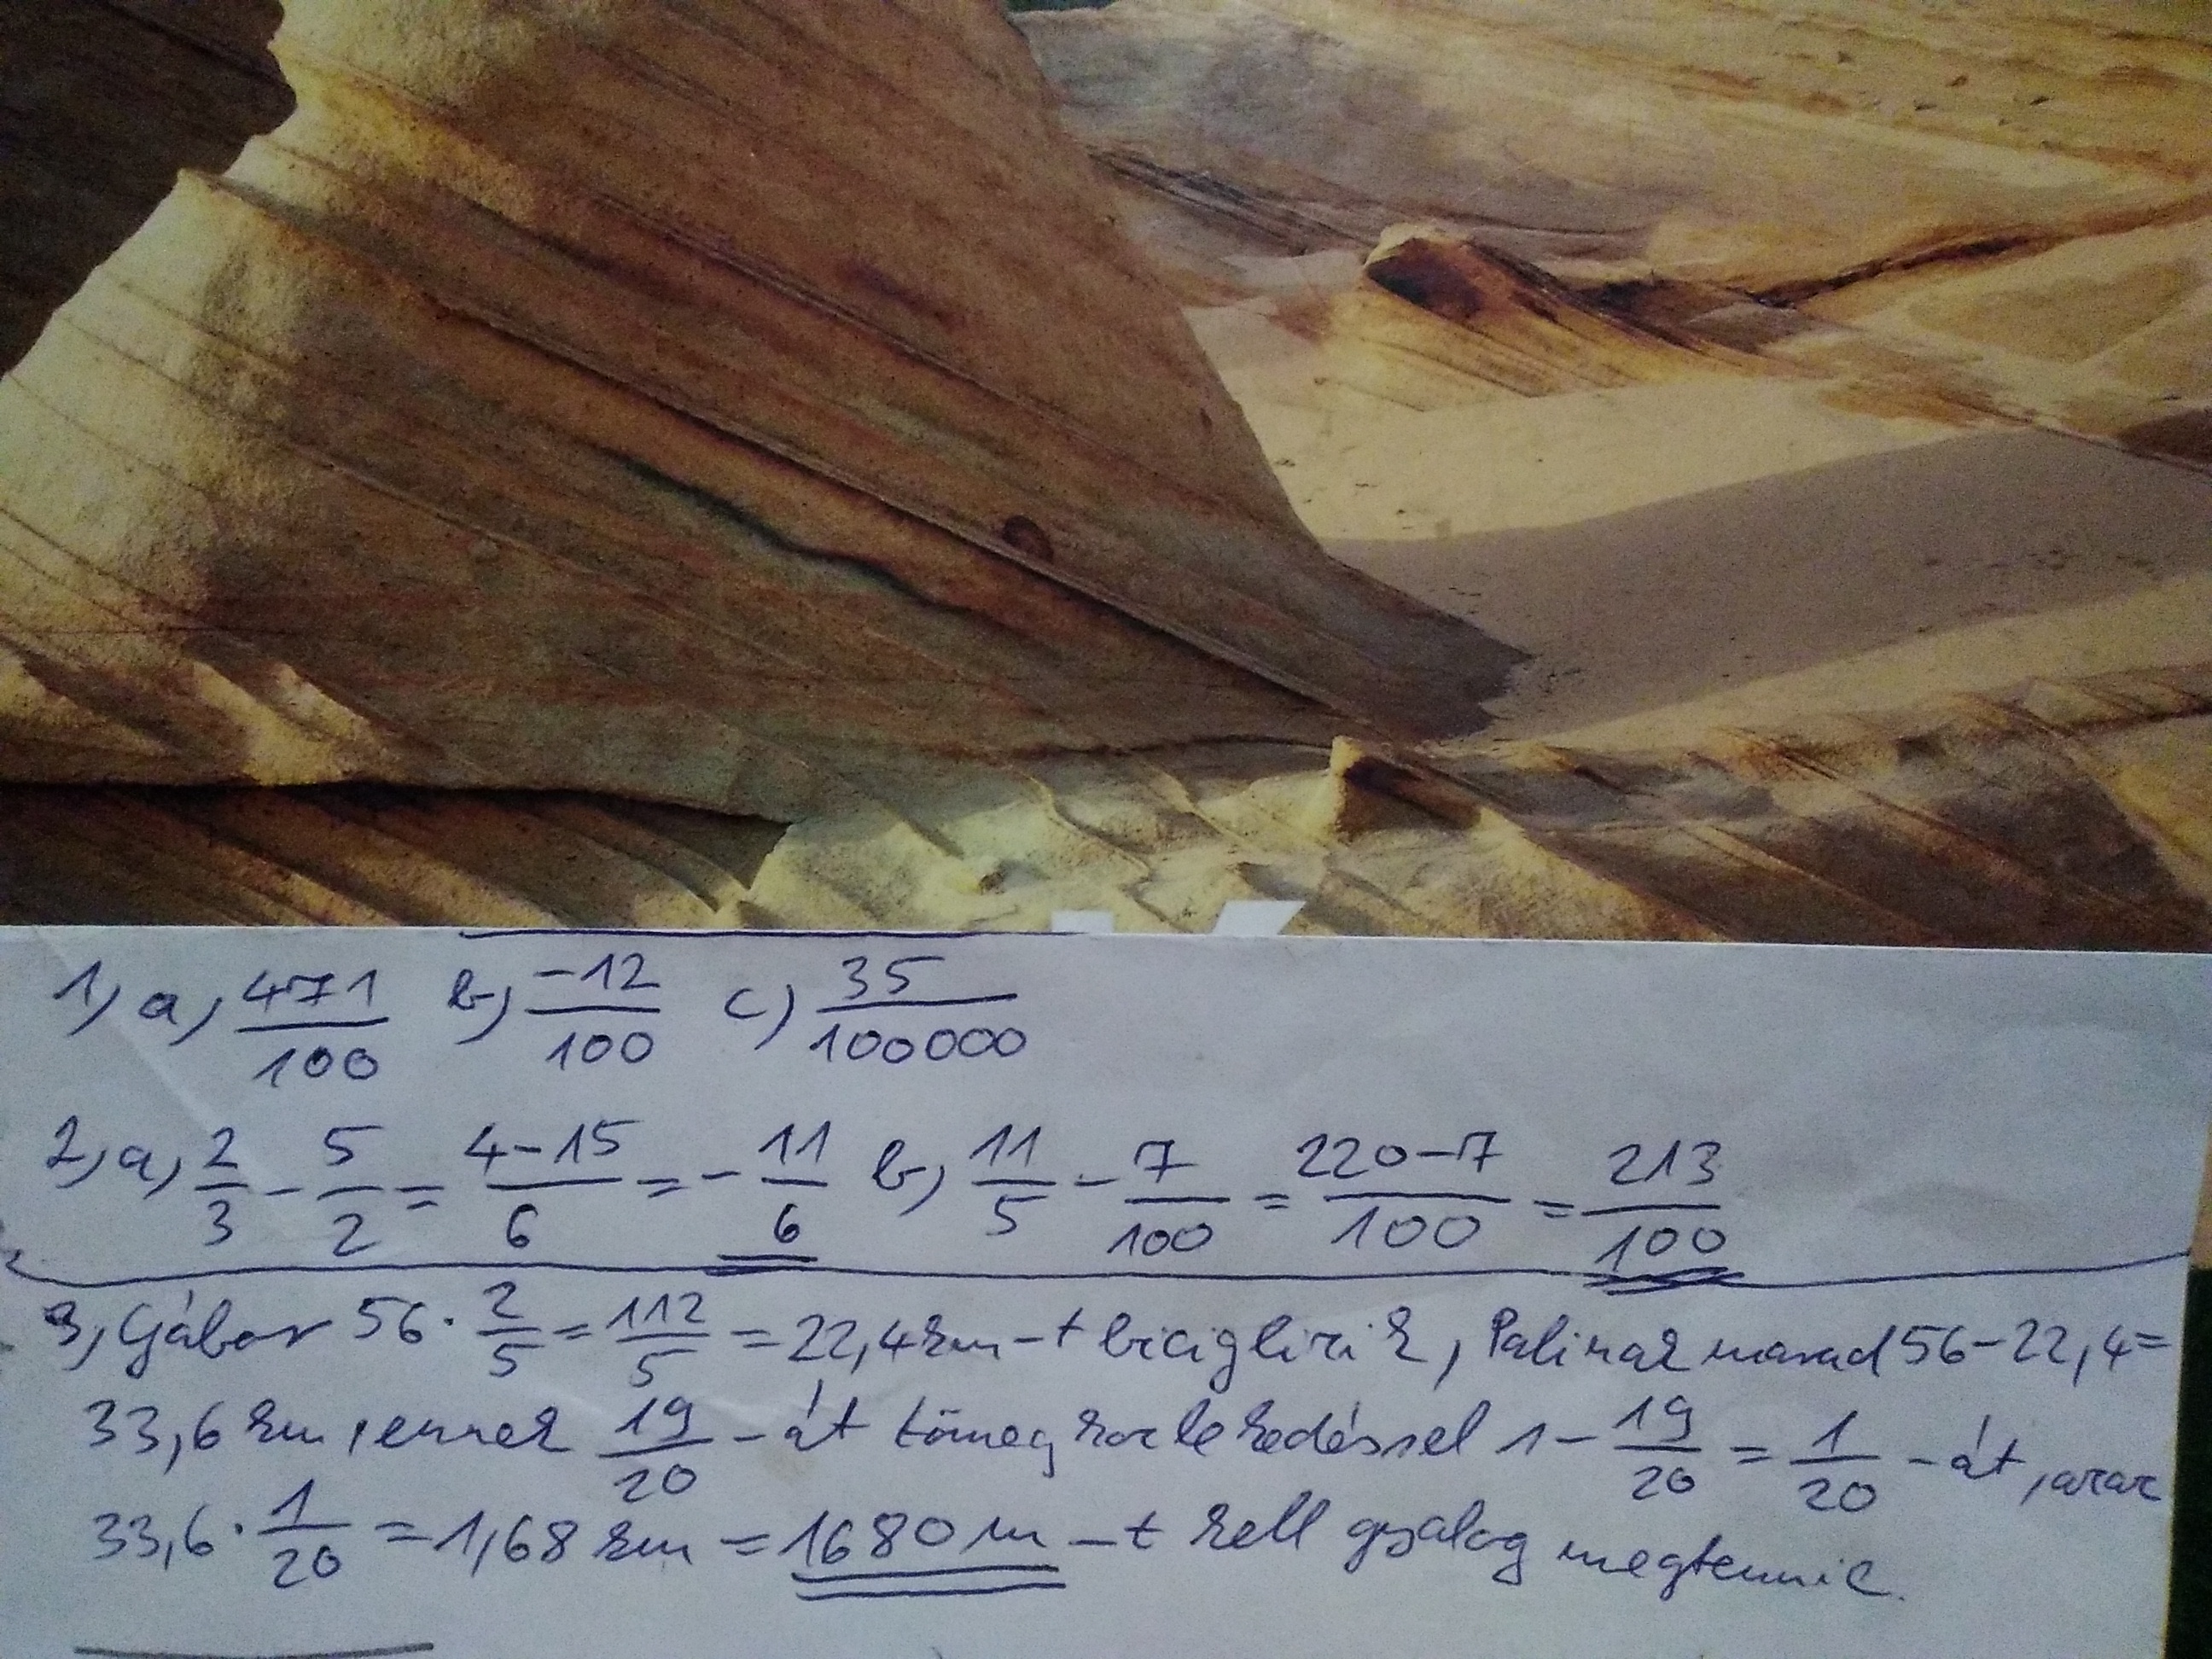 1, a, 471/100 b, -12/100 c) 35/100000
2, a, 2/3 - 5/2 = 4-15/6 = - 11/6 b, 11/5 - 7/100 = 220-7/100 = 213/100
3, Gábor 56 · 2/5 = 112/5 = 22,4 km-t biciglizik, Palinak marad 56-22,4=
33,6 km, ennek 19/20 -át tömegközlekedéssel 1 - 19/20 = 1/20 -át, azaz
33,6 · 1/20 = 1,68 km = 1680 m -t kell gyalog megtennie.